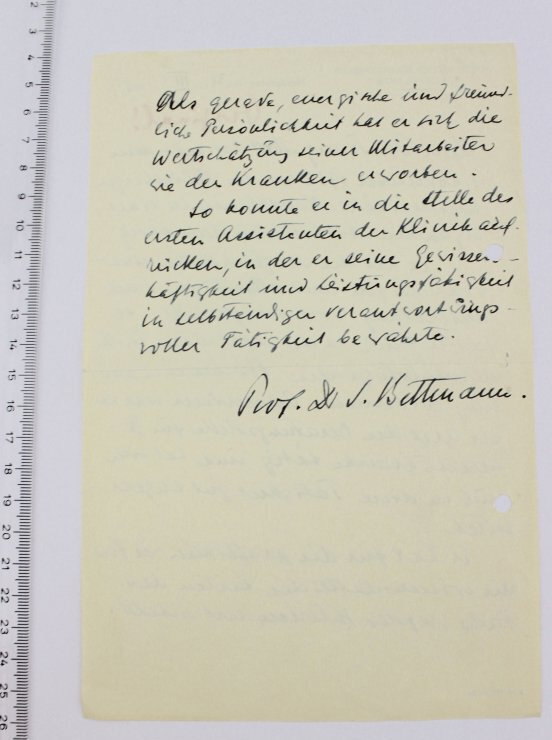 Als gerade, energische und freund-
liche Persönlichkeit hat er sich die
Wertschätzung seiner Mitarbeiter
wie der Kranken erworben.
So konnte er in die Stelle des
ersten Assistenten der Klinik auf-
rücken, in der er seine Gewissen-
haftigkeit und Leistungsfähigkeit
in selbständiger verantwortungs-
voller Tätigkeit bewährte.
Prof. Dr S. Bettmann.
2
3
4
5
6
7
8
9
10
11
12
13
14
15
16
17
18
19
20
21
22
23
24
25
26